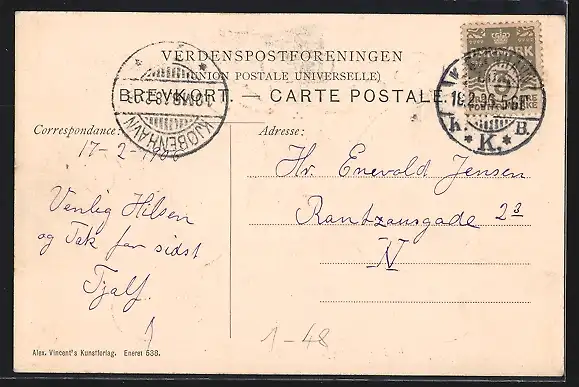 VERDENSPOSTFORENINGEN
(UNION POSTALE UNIVERSELLE)
BREVKORT. — CARTE POSTALE.
KJØBENHAVN
K. K. B.
Correspondance:
17-2-1906
Adresse:
Hr. Enevold Jensen
Rantzausgade 23
N
Venlig Hilsen
og Tak for sidst
Tjalf.
1-48
Alex. Vincent's Kunstforlag. Eneret 538.